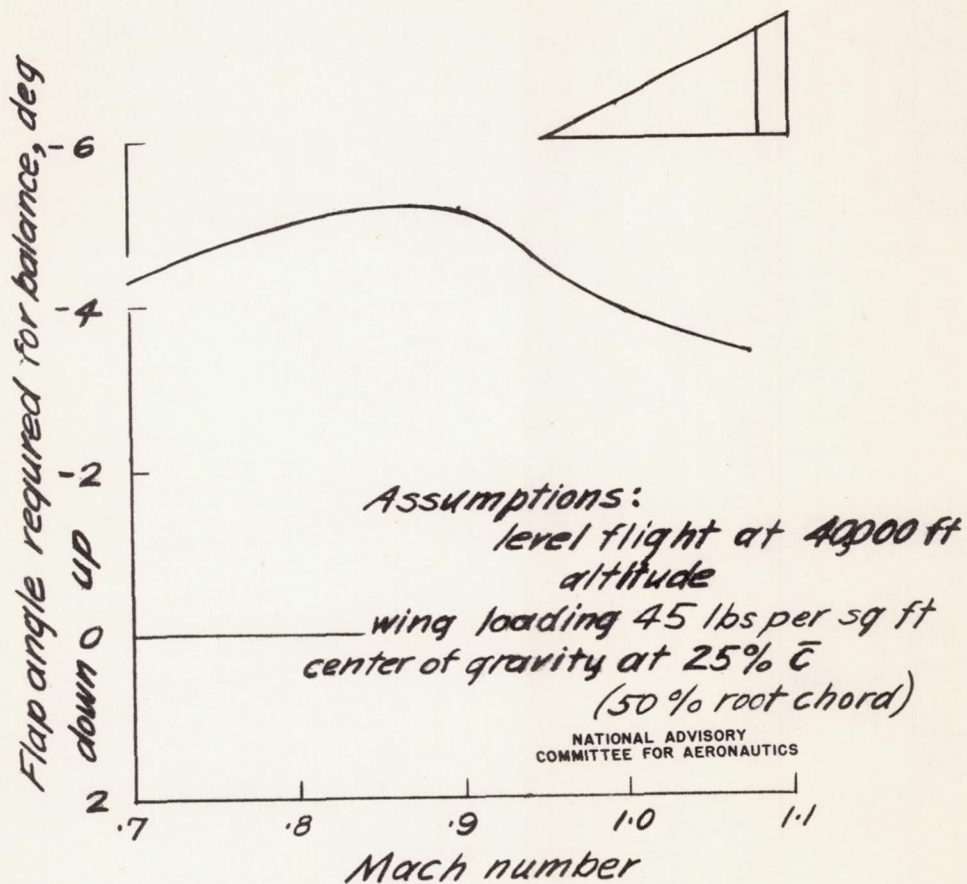 Flap angle required for balance, deg
down up
-6
-4
-2
0
2
Assumptions:
level flight at 40,000 ft
altitude
wing loading 45 lbs per sq ft
center of gravity at 25% c̄
(50% root chord)
NATIONAL ADVISORY
COMMITTEE FOR AERONAUTICS
.7 .8 .9 1.0 1.1
Mach number